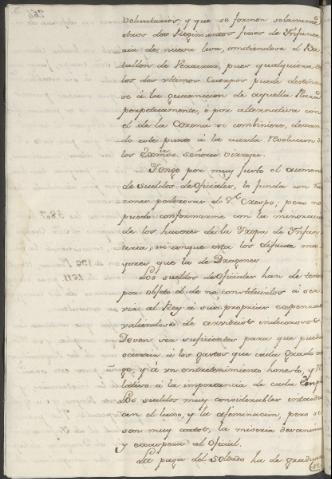 voluntarios, y que se formen solamente
otros dos Regimientos fixos de Infante-
ria de nueva leva, omitiendose el Ba-
tallon de Veracruz, pues qualquiera de
los dos ultimos Cuerpos puede destinar
se á la guarnicion de aquella Plaza
perpetuamente, ó por alternativa con
el de la Corona si combiniere, dexan-
do este punto á la cuerda resolucion de
los Señores
Tengo por muy justo el aumento
de sueldos de Oficiales, lo funda con
razones poderosas el Yll.e Crespo, pero no
puedo conformarme con la minoracion
de los haveres de la Tropa de Infan-
teria, ni aunque ésta los disfrute ma-
yores que la de Dragones
Los sueldos de Oficiales han de tener
por objeto el de no constituirlos á ser-
vir al Rey á sus propias expensas
valiendose de arvitrios indecorosos.
Deven ser suficientes para que puedan
ocurrir á los gastos que cada grado
y á un entretenimiento honesto, y
relativo á la importancia de cada
Los sueldos muy considerables introdu-
cen el luxo, y la afeminacion, pero si
son muy cortos, la miseria desanima
y al Oficial.
La paga del Soldado ha de graduar